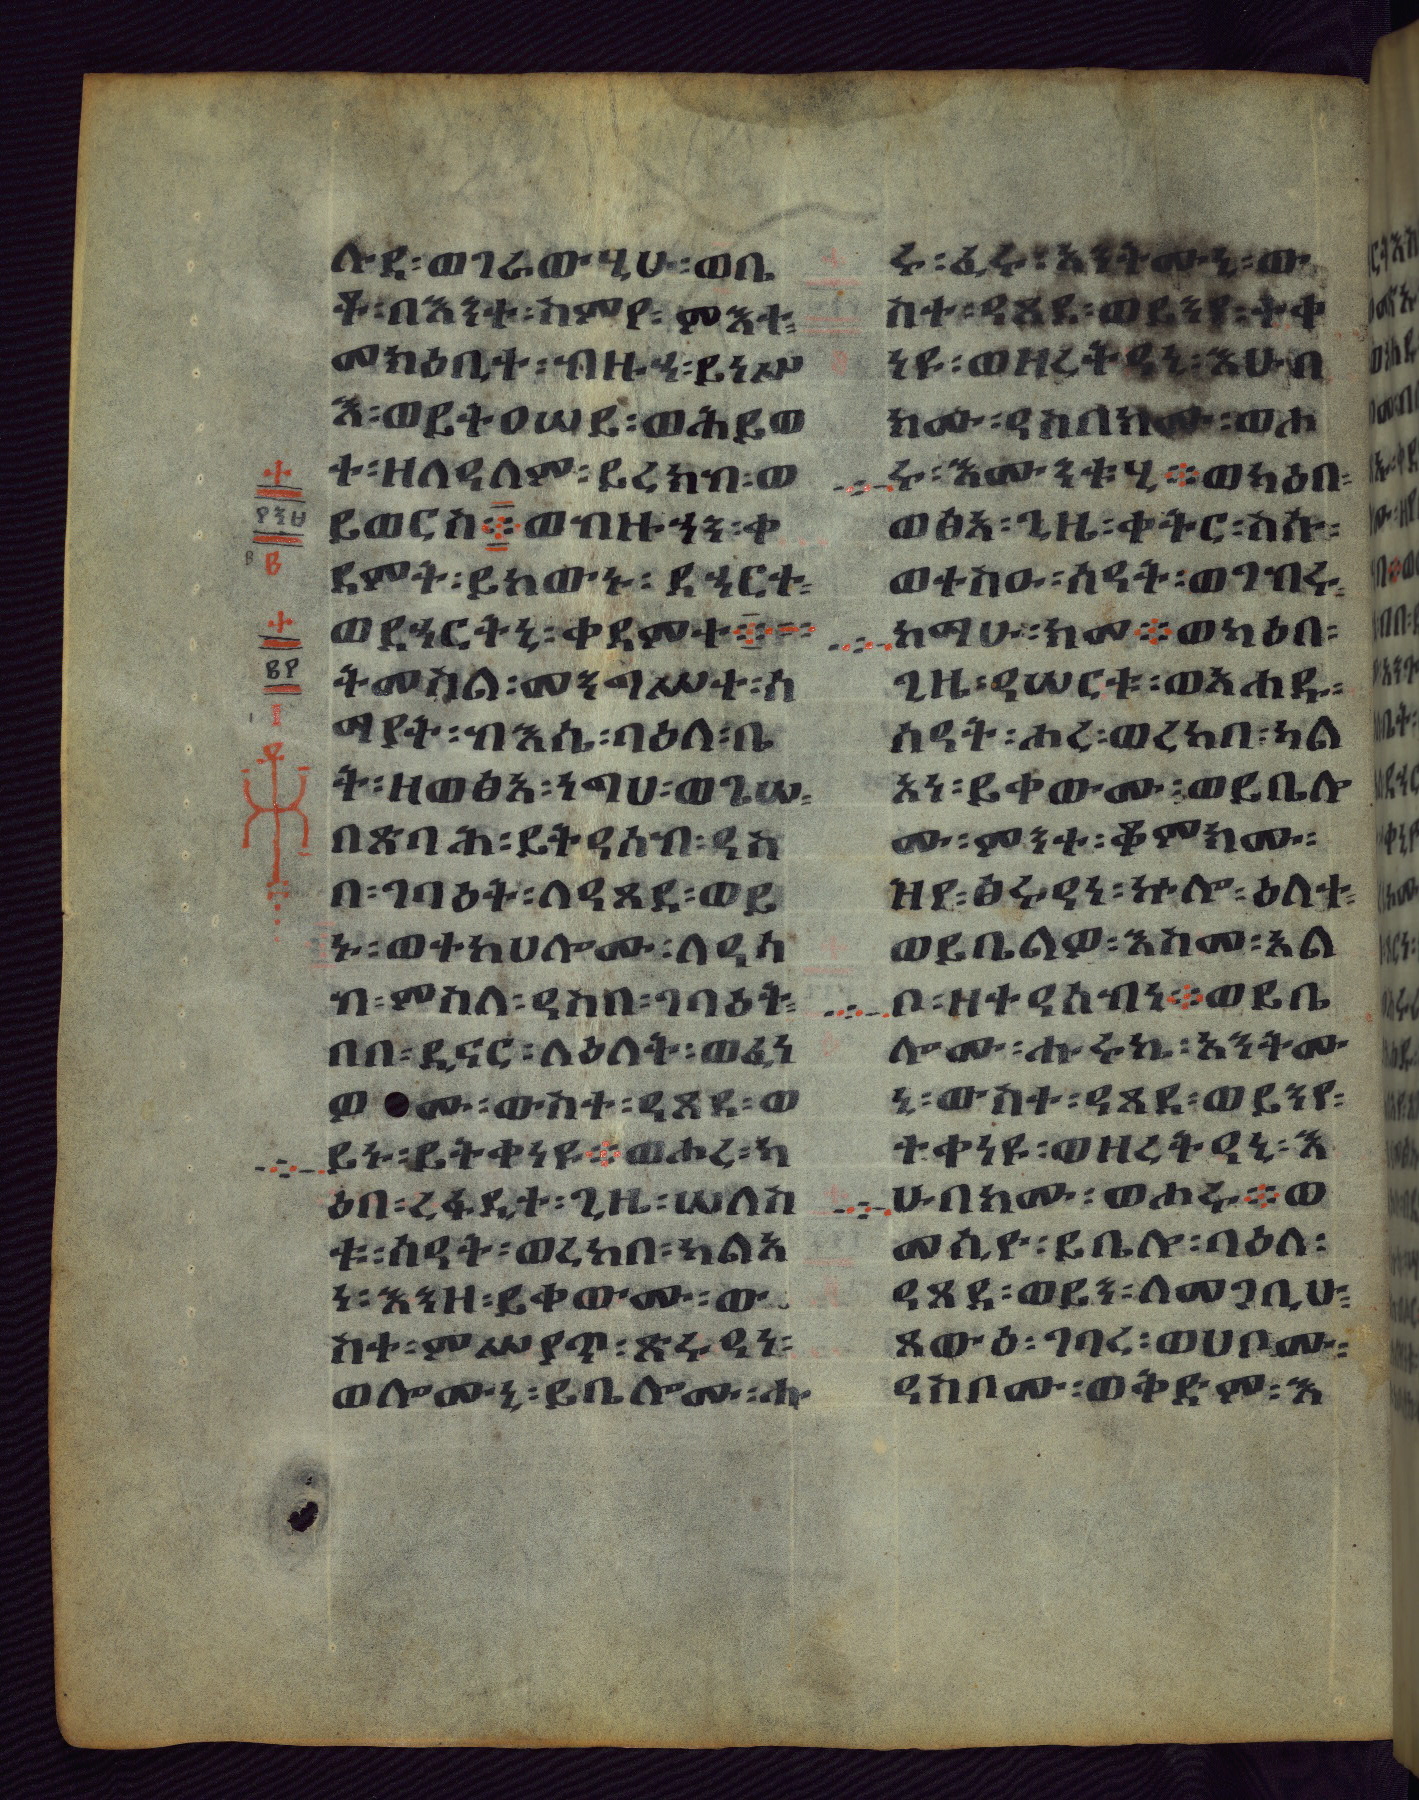 ሉደ፡ወገራውሂሁ፡ወቤ
ቶ፡በእንተ፡ስምየ፡ምእተ፡
መክዕቢተ፡ብዙኃ፡ይነሥ
እ፡ወይተዐሠይ፡ወሕይወ
ተ፡ዘለዓለም፡ይረክብ፡ወ
ይወርስ፨ወብዙኃን፡ቀ
ደምት፡ይከውኑ፡ደኃርተ፡
ወደኃርትኒ፡ቀደምተ፨
ትመስል፡መንግሥተ፡ሰ
ማያት፡ብእሴ፡ባዕለ፡ቤ
ት፡ዘወፅአ፡ነግሀ፡ወጌሠ፡
በጽባሕ፡ይትዓሰብ፡ዓሰ
በ፡ገባዕት፡ለዓጸደ፡ወይ
ኑ፡ወተከሀሎሙ፡ለዓሳ
ብ፡ምስለ፡ዓስበ፡ገባዕት፡
በበ፡ዲናር፡ለዕለት፡ወፈነ
ዎሙ፡ውስተ፡ዓጸደ፡ወ
ይኑ፡ይትቀነዩ፨ወሖረ፡ካ
ዕበ፡ረፋዲተ፡ጊዜ፡ሠለስ
ቱ፡ሰዓት፡ወረከበ፡ካልአ
ነ፡እንዘ፡ይቀውሙ፡ው
ስተ፡ምሥያጥ፡ጽሩዓነ፡
ወሎሙኒ፡ይቤሎሙ፡ሑ
ሩ፡ፈሩ፡አንትሙኒ፡ው
ስተ፡ዓጸደ፡ወይንየ፡ተቀ
ነዩ፡ወዘረትዓኒ፡እሁብ
ክሙ፡ዓስበክሙ፡ወሖ
ሩ፡እሙንቱሂ፨ወካዕበ፡
ወፅአ፡ጊዜ፡ቀትር፡ስሱ፡
ወተስዑ፡ሰዓት፡ወገብሩ፡
ከማሁ፡ከመ፨ወካዕበ፡
ጊዜ፡ዓሠርቱ፡ወአሐዱ፡
ሰዓት፡ሖረ፡ወረከበ፡ካል
አነ፡ይቀውሙ፡ወይቤሎ
ሙ፡ምንተ፡ቆምክሙ፡
ዝየ፡ፅሩዓነ፡ኵሎ፡ዕለተ፡
ወይቤልዎ፡እስመ፡አል
ቦ፡ዘተዓሰብነ፨ወይቤ
ሎሙ፡ሑሩኬ፡አንትሙ
ኒ፡ውስተ፡ዓጸደ፡ወይንየ፡
ተቀነዩ፡ወዘረትዓኒ፡እ
ሁብክሙ፡ወሖሩ፨ወ
መስዮ፡ይቤሎ፡ባዕለ፡
ዓጸደ፡ወይን፡ለመጋቢሁ፡
ጸውዕ፡ገባረ፡ወሀቦሙ፡
ዓስቦሙ፡ወቅድም፡እ